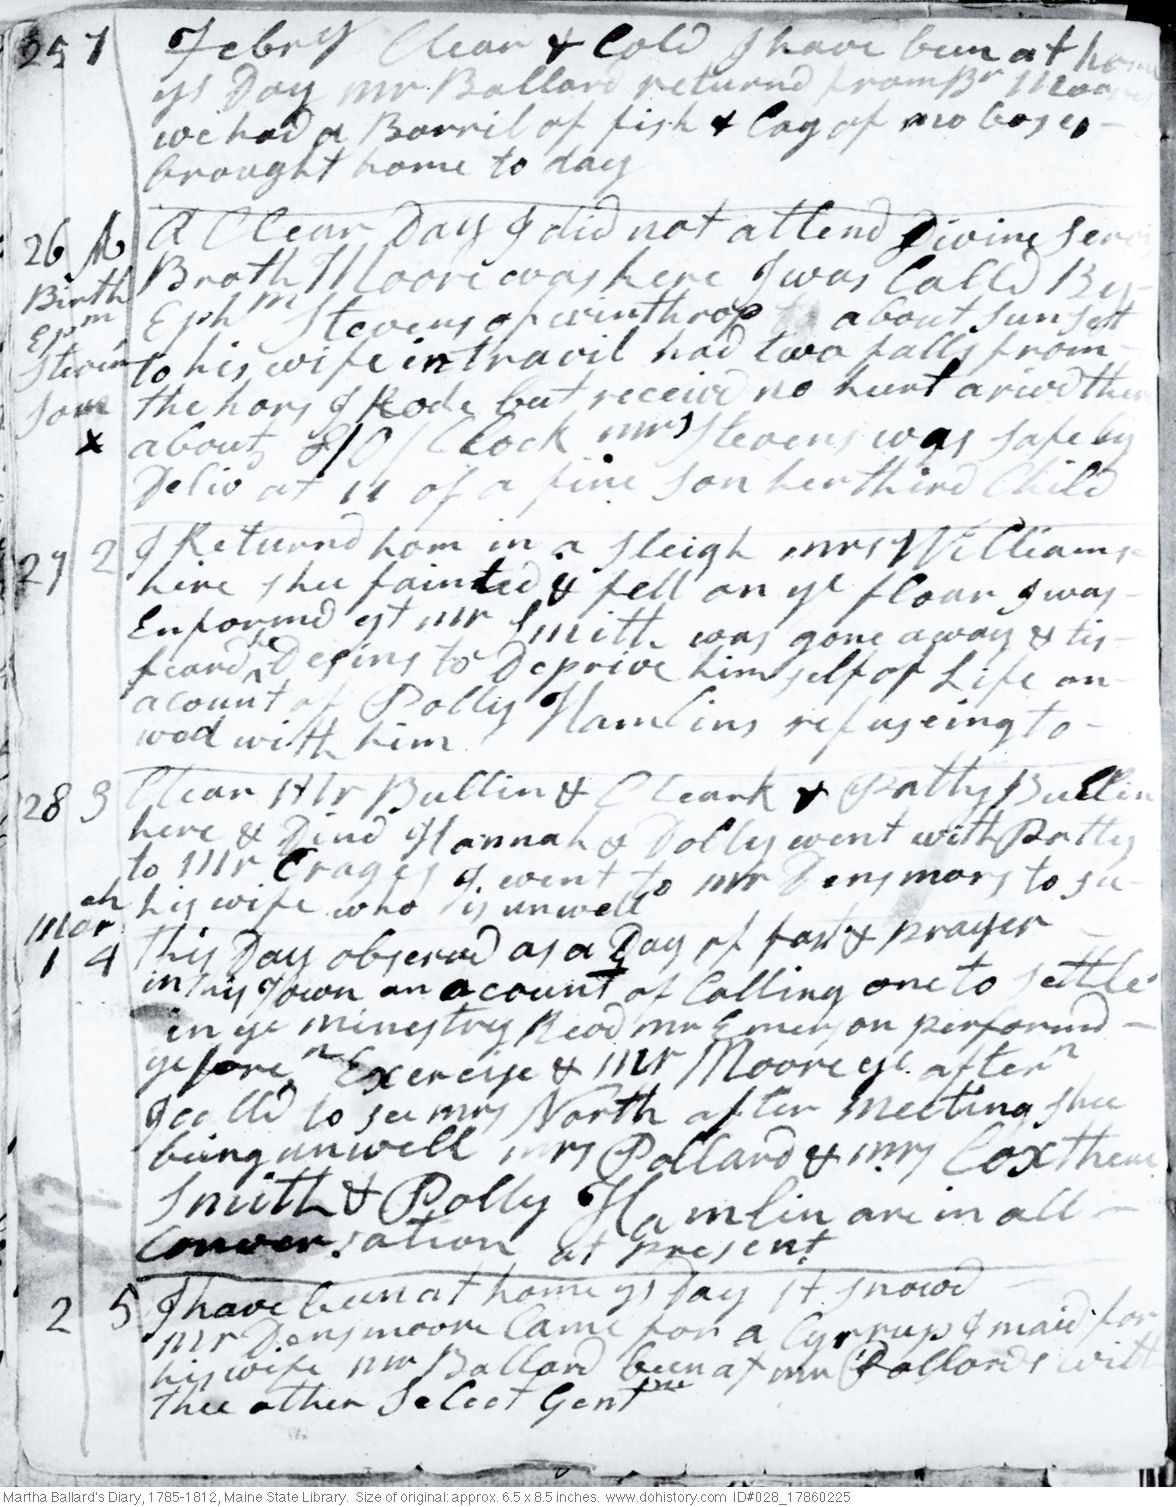 25 7 Febry Clear & Cold I have been at home
ys Day mr Ballard returnd from Br Moores
we had a Barril of fish & Cag of
brought home to day
26 A Clear Day I did not attend Divine Servis
Birth Broth Moore was here I was Calld By
Epm Ephm Stevens of winthrop about sun sett
Steven to his wife in travil had two falls from
Son the hors I Rode but receivd no hurt arivd there
x about 8 / O / Clock mrs Stevens was safe ly
Deliv at 11 of a fine son her third Child
27 2 I Returnd hom in a sleigh mrs Williams
here shee fainted & fell on ye floar I was
Enformd yt mr Smith was gone away & tis
feard he Desins to Deprive him self of Life on
acount of Polly Hamlins refuseing to
wed with him
28 3 Clear Mr Bullin & Cleark & Patty Bullin
here & Dind Hannah & Dolly went with Patty
to Mr Crages I went to mr Densmors to se
his wife who is unwell
March
1 4 this Day observd as a Day of fast & prayer
in this Town on acount of Calling one to settle
in ye ministry Revd mr Emerson performd
ye foren Exercise & Mr Moore ye aftern
I calld to see mrs North after meeting shee
being unwell mrs Pollard & mrs Cox there
Smith & Polly Hamlin are in all
Conversation at present
2 5 I have been at home ys Day it snowd
mr Densmoore Came for a Cyrrup I maid for
his wife mr Ballard been at mr Pollards with
thee other Select Gentmn
Martha Ballard's Diary, 1785-1812, Maine State Library. Size of original: approx. 6.5 x 8.5 inches. www.dohistory.com ID#028_17860225